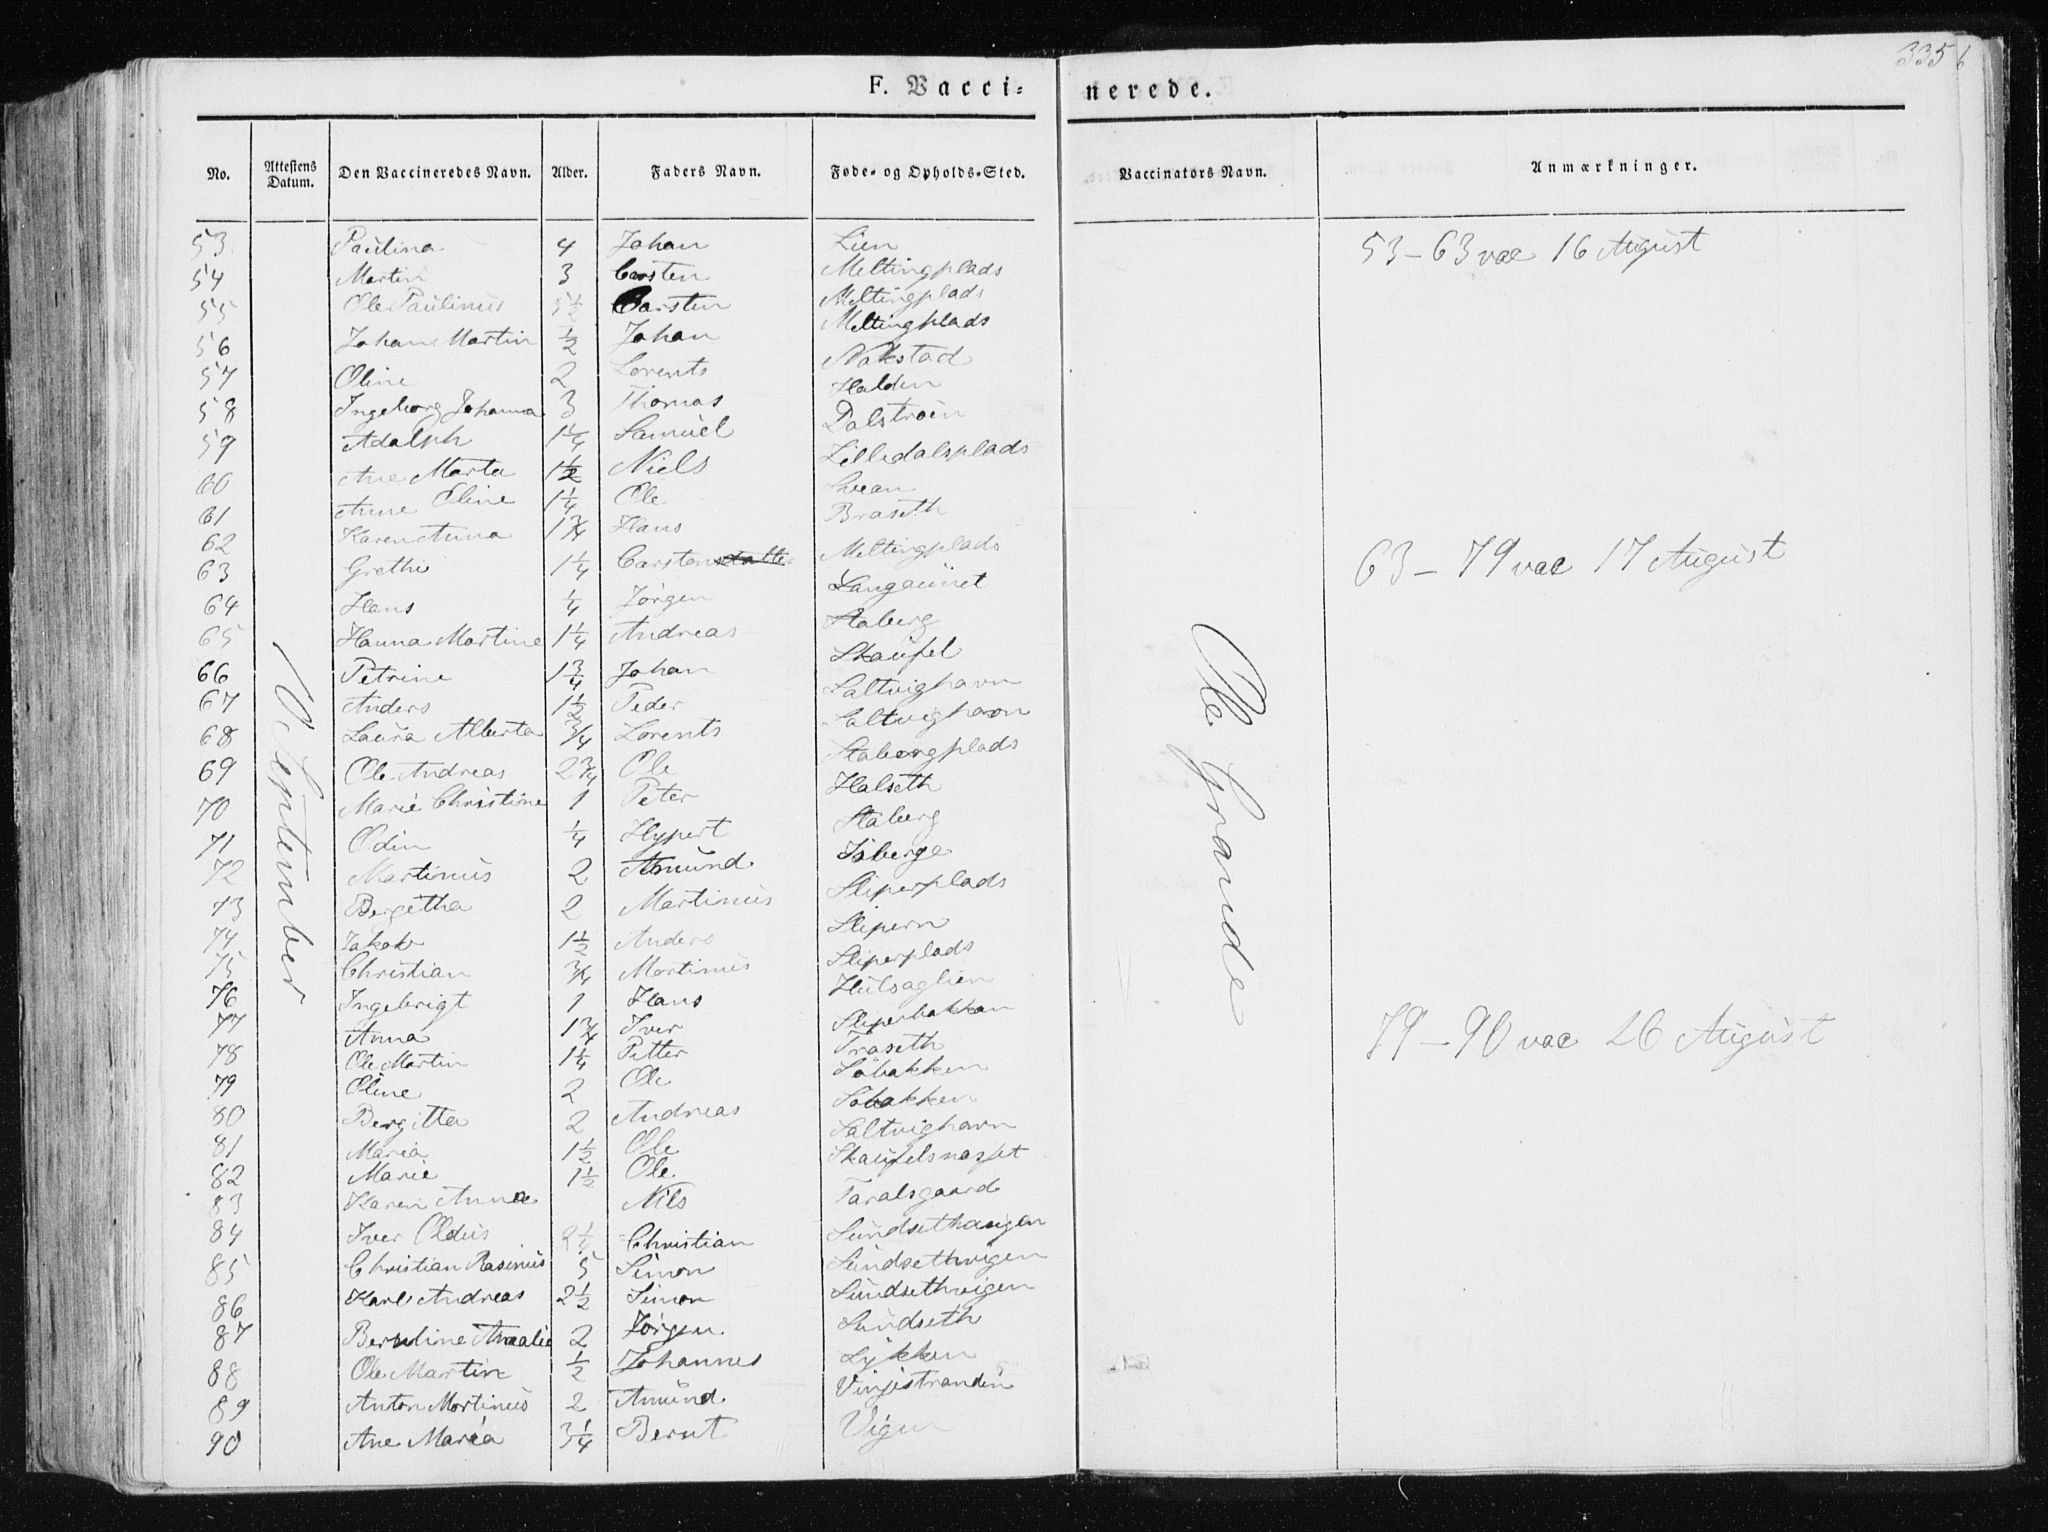 335 b
F. Vacci= nerede.
No. Attestens Datum. Den Vaccineredes Navn. Alder. Faders Navn. Føde- og Opholds-Sted. Vaccinators Navn. Anmærkninger.
10 September
Ole Grande
53 Paulina 4 Johan Lien 53-63 vac 16 August
54 Martin 3 Carsten Meltingplads
55 Ole Paulinus 5½ Carsten Meltingplads
56 Johan Martin ½ Johan Meltingplads
57 Oline 2 Lorents Nakstad
58 Ingeborg Johanna 3 Thomas Halden
59 Adolph 1¼ Samuel Dalstrøen
60 Ane Marta 1½ Niels Lilledalsplads
61 Anne Eline 1¼ Ole Svean
62 Karen Anna 1¾ Hans Braseth
63 Grethe 1¼ Carsten Meltingplads 63-79 vac 17 August
64 Hans ¼ Jørgen Langaunet
65 Hanna Martine 1¼ Andreas Staberg
66 Petrine 1¾ Johan Skaufel
67 Anders 1½ Peder Saltvighavn
68 Laura Alberta ¾ Lorents Saltvighavn
69 Ole Andreas 2¾ Ole Stabergplads
70 Marie Christine 1 Peter Halseth
71 Odin ¼ Hypert Staberg
72 Martinus 2 Amund
73 Bergitha 2 Martinus Sliperplads
74 Jakob 1½ Anders Slipern
75 Christian ¾ Martinus Sliperplads
76 Ingebrigt 1 Hans Hulsaglien
77 Anna 1¾ Iver Sliperbakkan
78 Ole Martin 1¼ Petter Traseth
79 Oline 2 Ole Søbakken 79-90 vac 26 August
80 Bergitta 2 Andreas Søbakken
81 Maria 1½ Ole Saltvighavn
82 Marie 1½ Ole Skaufelsnasset
83 Karen Anna Nils Taralsgaard
84 Iver Oldus 2¼ Christian Sundsethaugen
85 Christian Rasinus 5 Simon Sundsethvigen
86 Karl Andreas 2½ Simon Sundsethvigen
87 Bernline Amalie 2 Jørgen Sundseth
88 Ole Martin ½ Johannes Lykken
89 Anton Martinus 2 Amund Vinjestranden
90 Ane Maria 3¼ Bernt Vigen